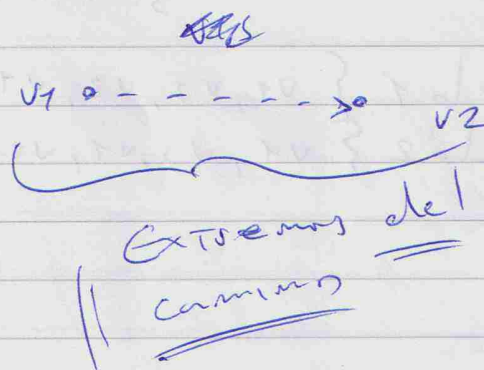 v1
v2
Extremos del
camino